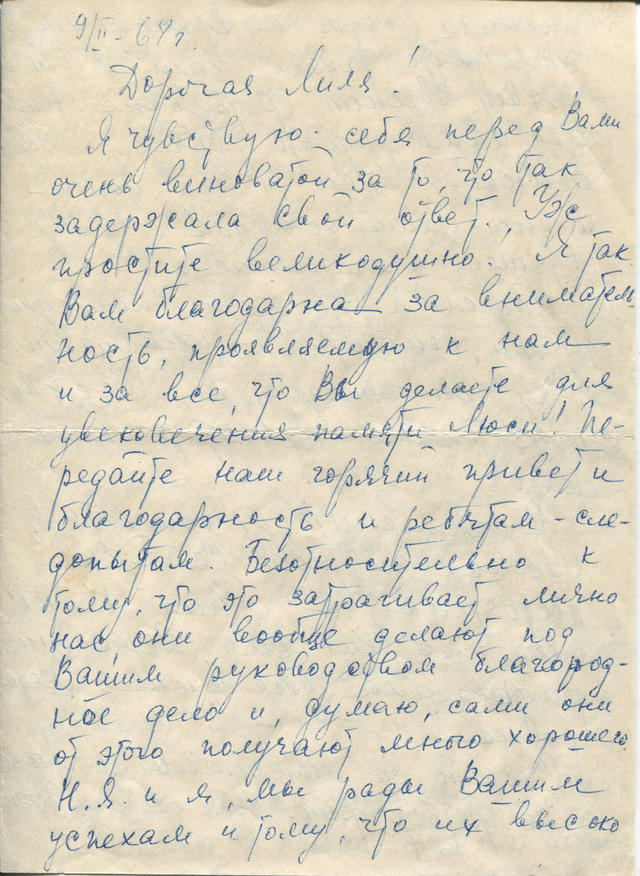 9/II-68 г.
Дорогая Лиля!
Я чувствую себя перед Вами
очень виноватой за то, что так
задержала свой ответ. Уж
простите великодушно! Я так
Вам благодарна за вниматель-
ность, проявляемую к нам
и за все, что Вы делаете для
увековечения памяти Люси! Пе-
редайте наш горячий привет и
благодарность и ребятам-сле-
допытам. Безотносительно к
тому, что это затрагивает лично
нас, они вообще делают под
Вашим руководством благород-
ное дело и, думаю, сами они
от этого получают много хорошего.
Н.Я. и я, мы рады Вашим
успехам и тому, что их высоко